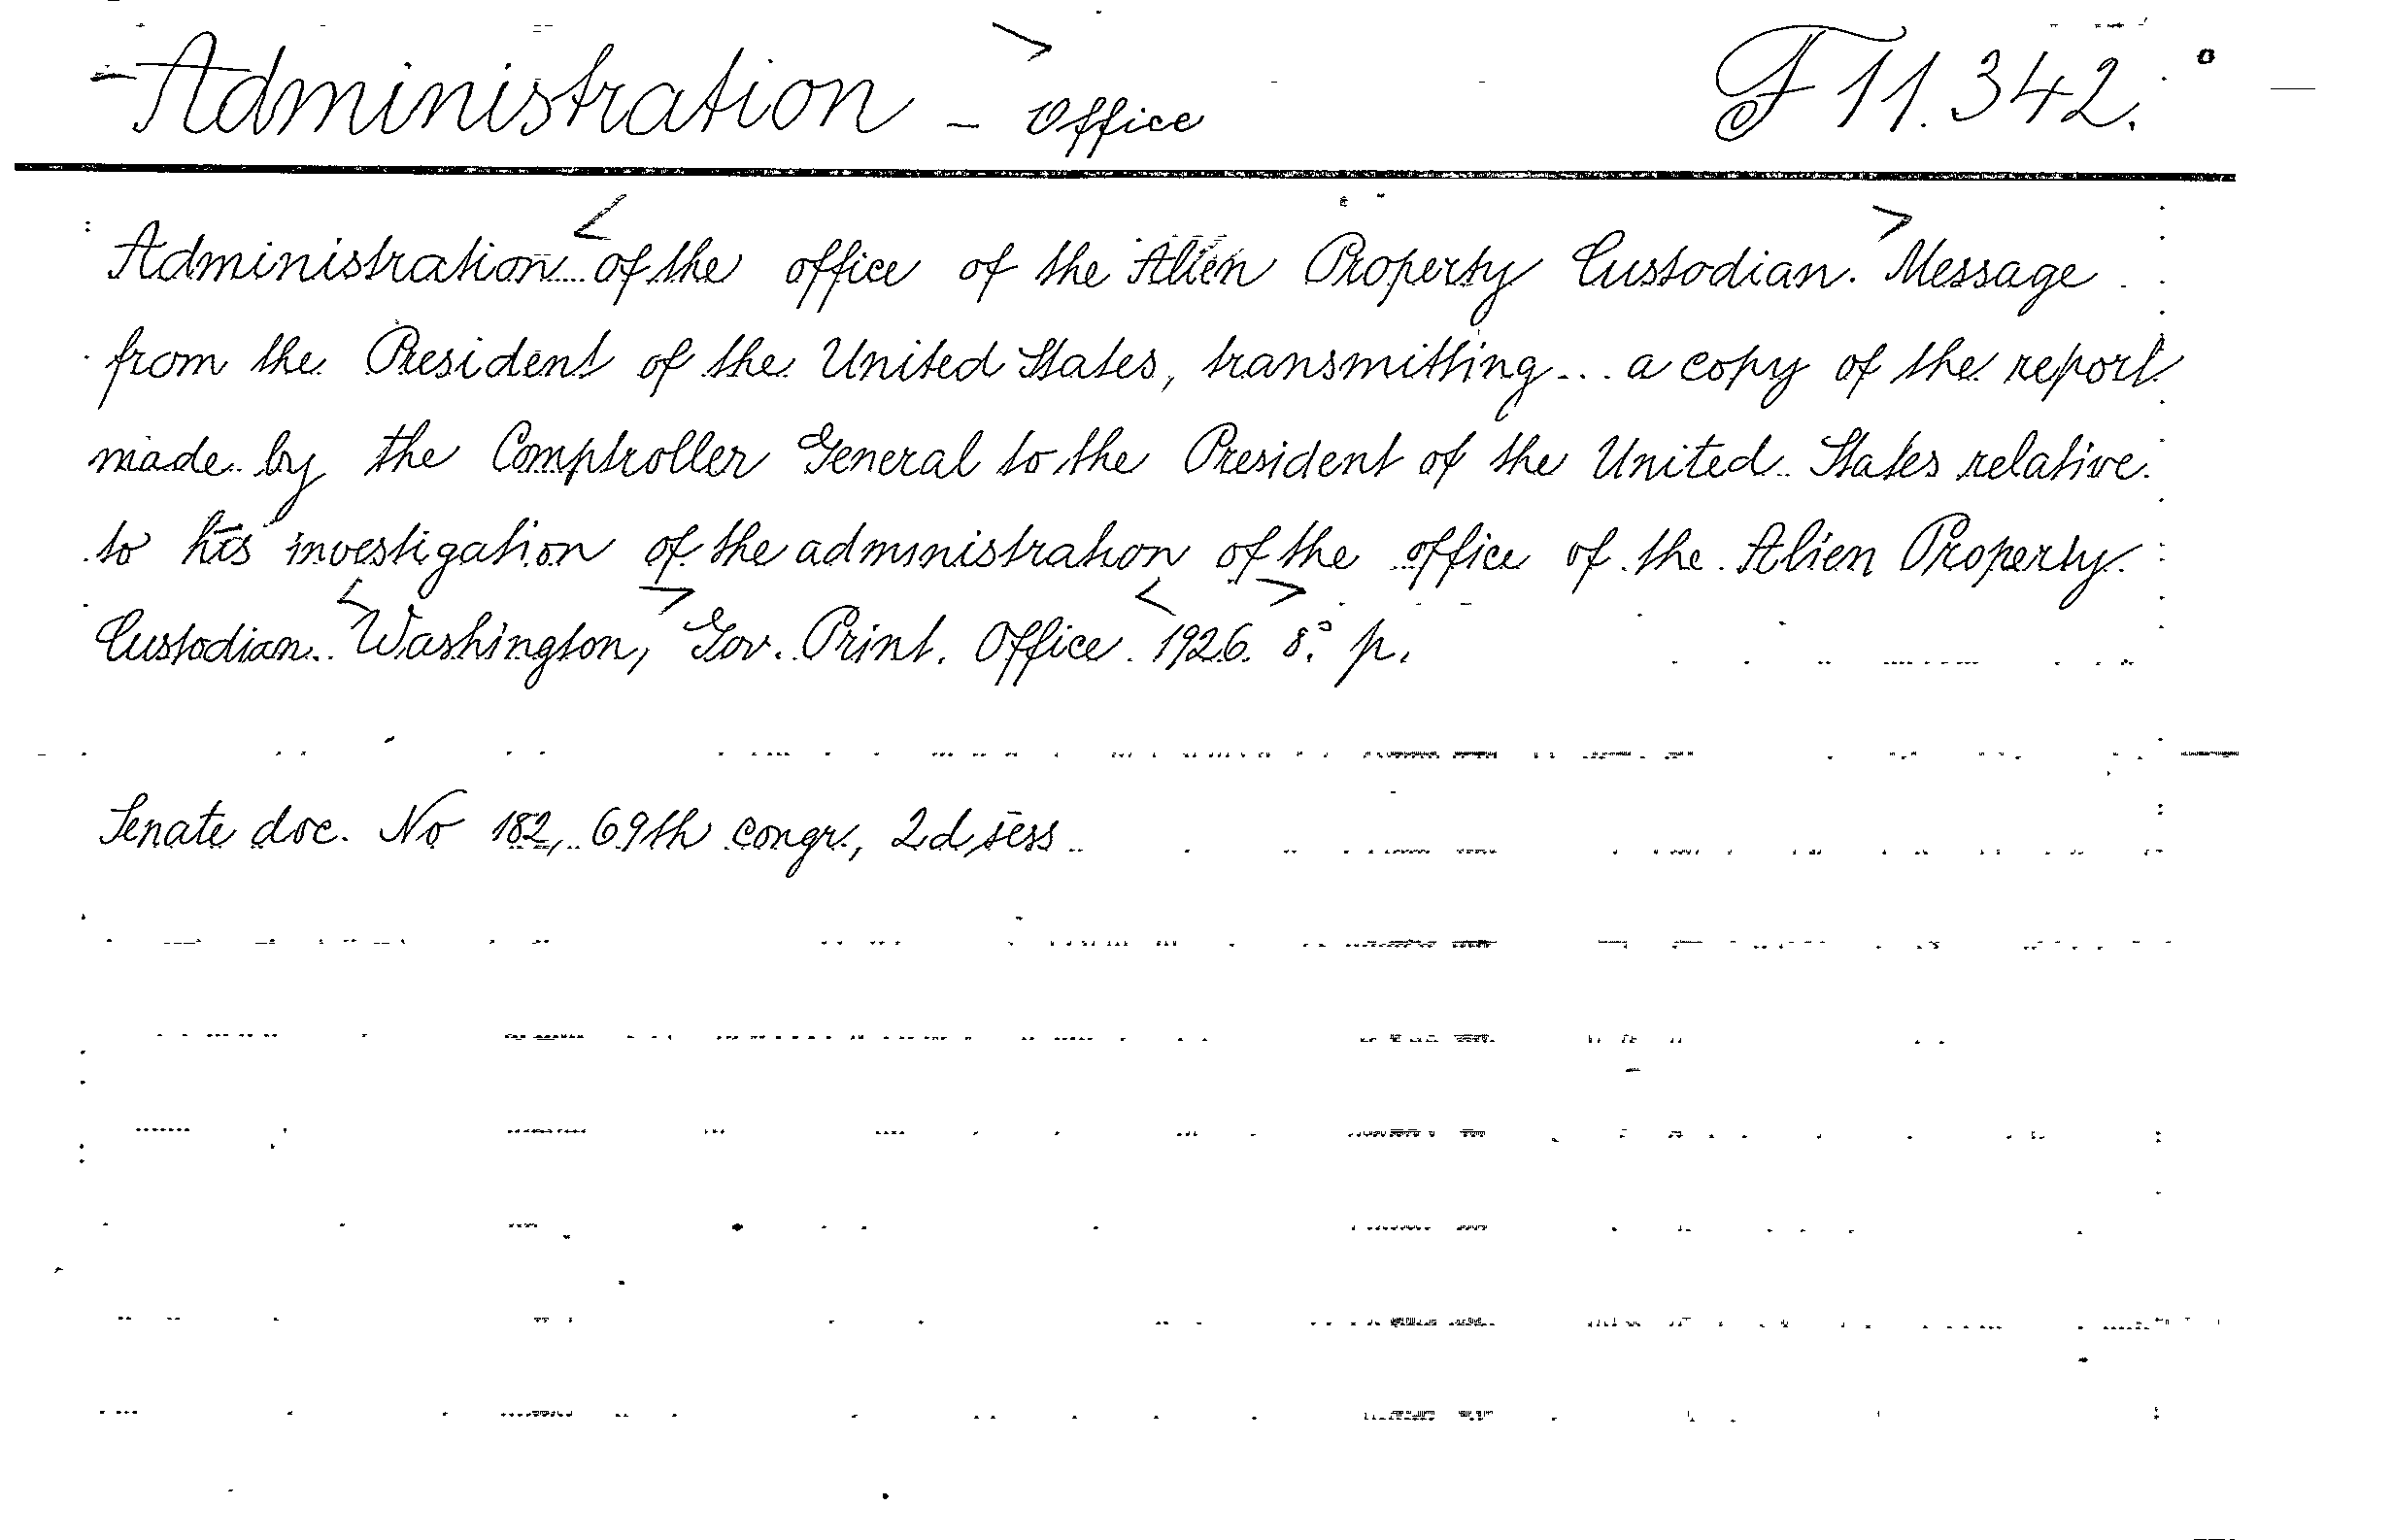 Administration - Office F 11.342.
Administration of the office of the Alien Property Custodian. Message
from the President of the United States, transmitting... a copy of the report
made by the Comptroller General to the President of the United States relative
to his investigation of the administration of the office of the Alien Property
Custodian. Washington, Gov. Print. Office. 1926. 8.° p.
Senate doc. No 182, 69th congr., 2d sess